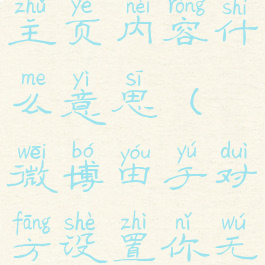 zhǔ yè nèi róng shí
主页内容什
me yì sī
么意思(
wēi bó yóu yú duì
微博由于对
fāng shè zhì nǐ wú
方设置你无